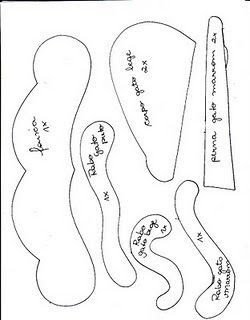 faixa
1x
Rabo
gato
preto
1x
corpo gato bege
2x
perna gato marrom 2x
Rabo
gato bege
1x
1x
Rabo gato
marrom